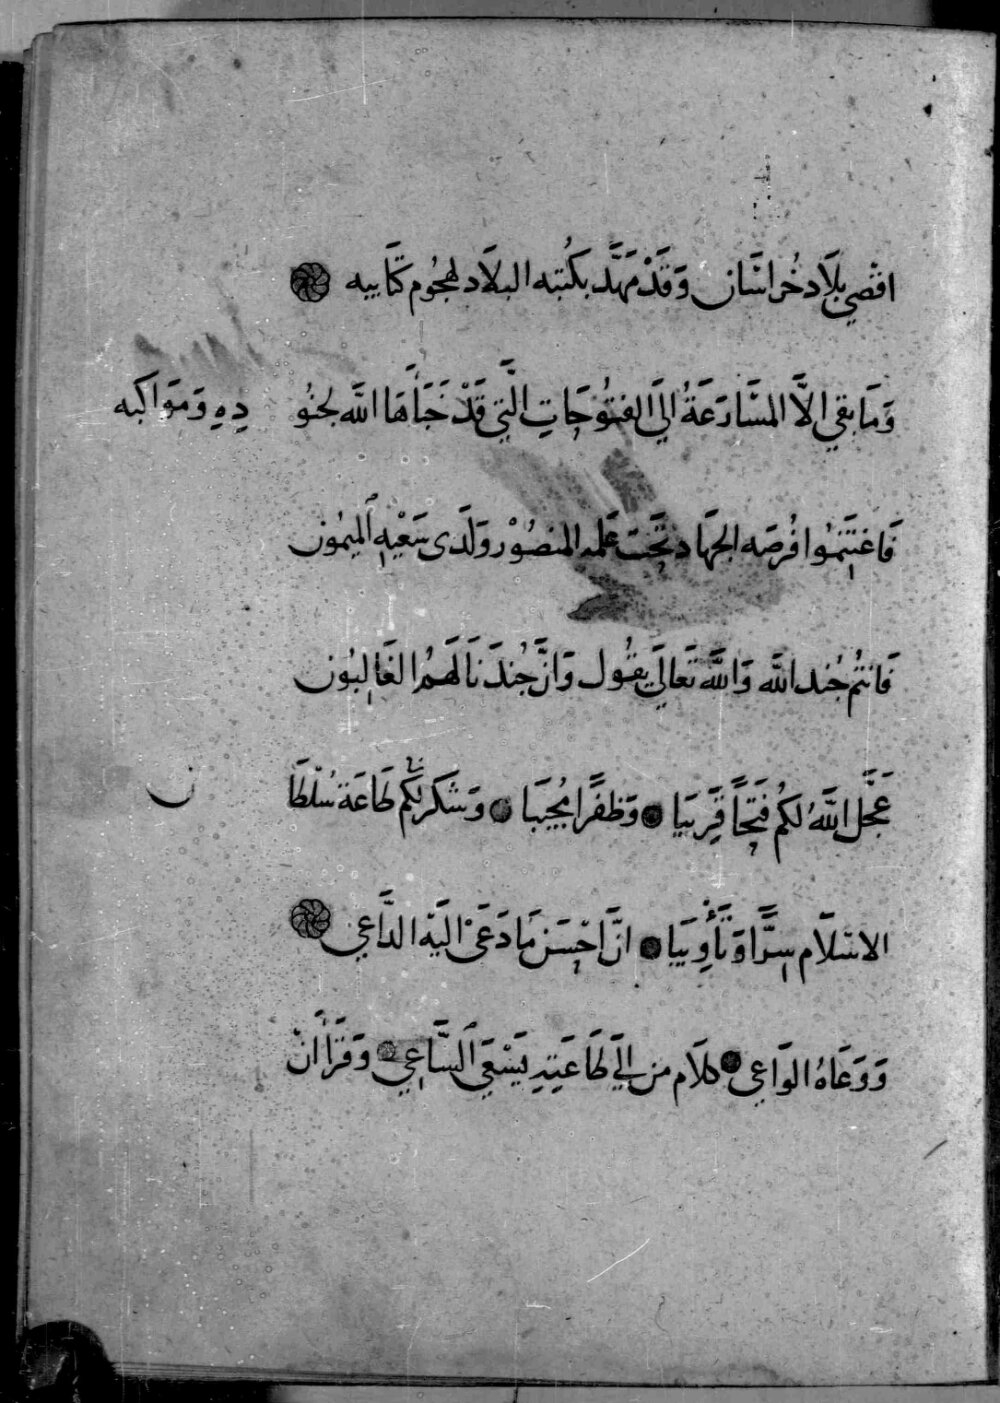 اقْصي بلَاد خُراسَان وَقَدْ مَهَّد بكُتبه البلَاد لهجُوم كتَايبه
وَمَا بقي الَّا المسَارَعَةُ اليَ الفتُوحَاتِ الَّتي قَدْ خَبَأهَا اللَّه لجنُودِهِ وَمَوَاكبه
فَاغتَنمُوا فُرصَه الجهَاد تَحتَ عَلمه المنصُوْر وَلَدَى سَعْيهِ الميمُون
فَانتُم جُند اللَّه وَاللَّه تَعَاليَ يقُول وَانَّ جُندَنَا لَهمُ الغَالبُون
عَجَّل اللَّهُ لكُم فَتحًا قَرِيَبا وَظفَرًا مُجيبَا وَشكَر لكُم طَاعَة سُلْطَان
الاسَلَام سِرَّا وَتَأوِيَبا انَّ احْسَنَ مَا دَعَىْ اليَهْ الدَّاعي
وَوَعَاهُ الوَاعي كلَام من اليَ طَاعَتِهِ يَسْعَي السَّاعِي وَقَرَأ انْ